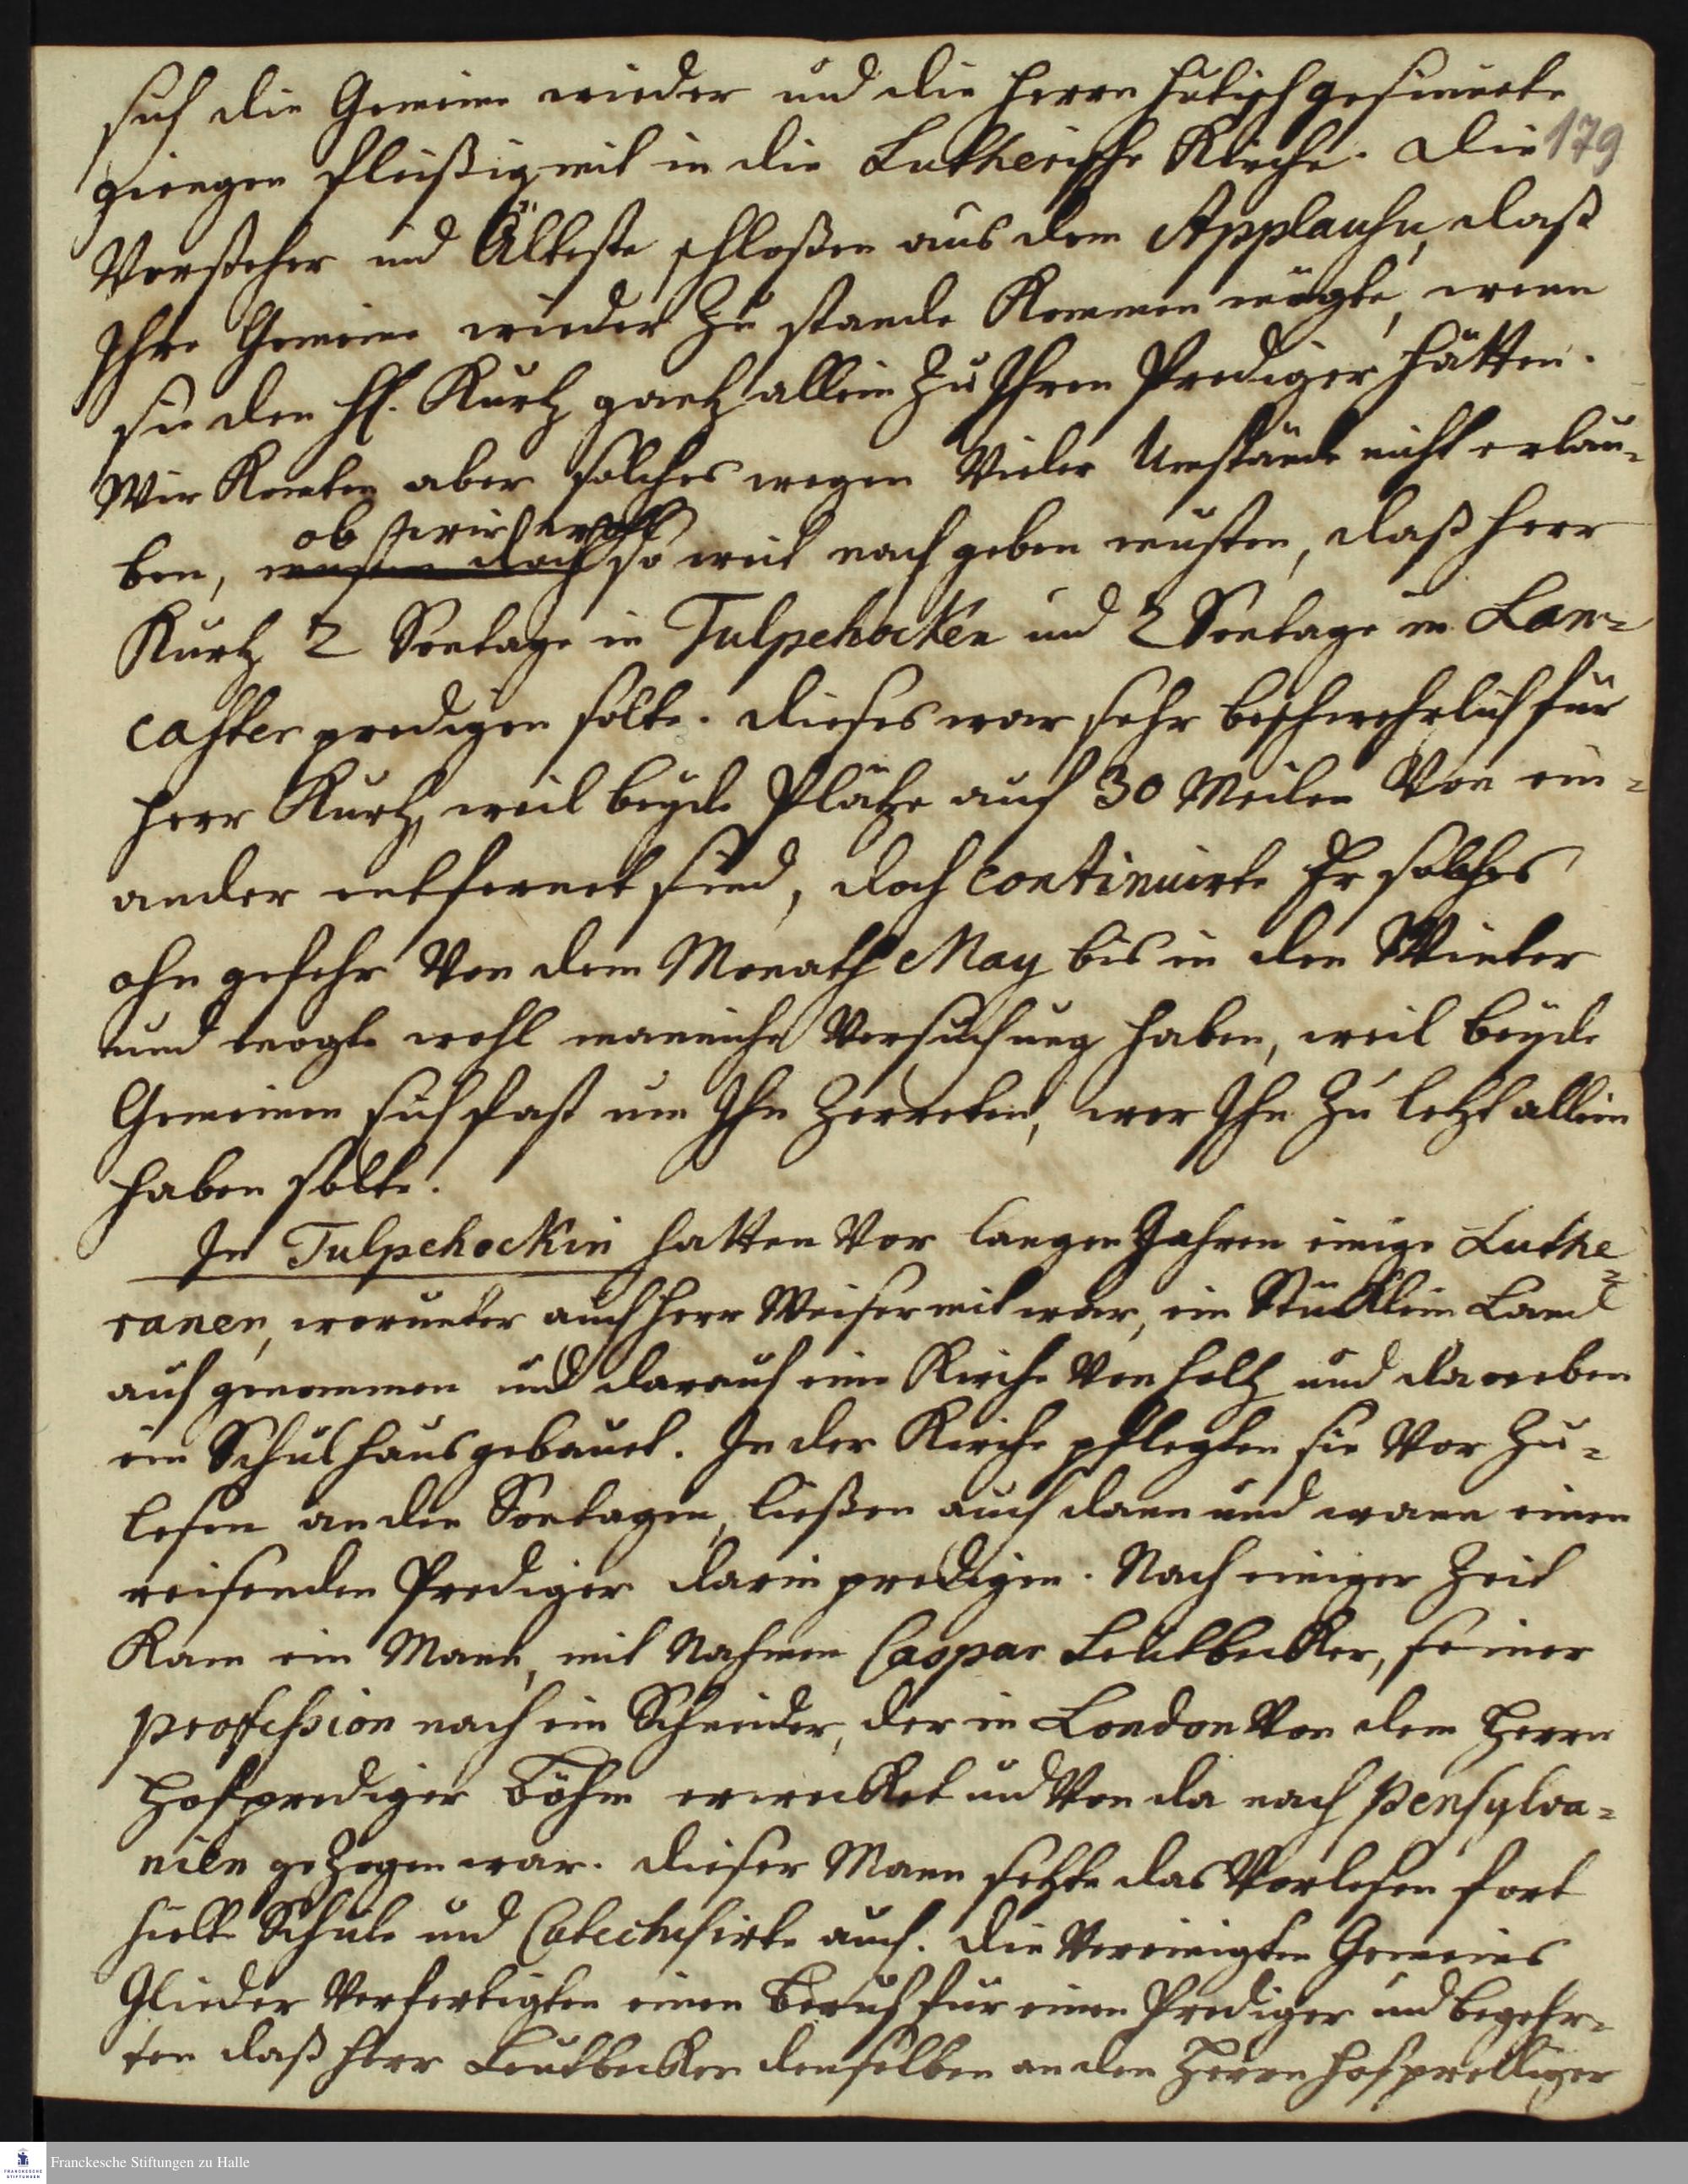 sich die Gemeine wieder und die Herrn Hutisch gesinnete
179
giengen fleißig mit in die Lutherische Kirche. Die
Vorsteher und Älteste schloßen aus dem Applausu, daß
Ihre Gemeine wieder zu stande kommen mögte, wenn
sie den H. Kurtz gantz allein zu Ihren Prediger hätten.
Wir konten aber solches wegen vieler Umstände nicht erlau-
ob wir wohl
ben, musten doch so weit nach geben musten, daß Herr
Kurtz 2 Sontage in Tulpehocken und 2 Sontage in Lan-
caster predigen solte. Dieses war sehr beschwehrlich für
Herr Kurtz, weil beyde Plätze auf 30 Meilen von ein-
ander entfernet sind, doch continuirte Er solches
ohn gefehr von dem Monath May bis in den Winter
und mogte wohl manniche Versuchung haben, weil beyde
Gemeinen sich fast um Ihn zerreten, wer Ihn zu letzt allein
haben solte.
In Tulpehockin hatten vor langen Jahren einige Luthe-
raner, worunter auch Herr Weiser mit war, ein Stücklein Land
auf genommen und darauf eine Kirche von Holtz und darneben
ein Schulhaus gebauet. In der Kirche pflegten sie vor zu-
lesen an den Sontagen, ließen auch dann und wann einen
reisenden Prediger darin predigen. Nach einiger Zeit
kam ein Mann, mit Nahmen Caspar Leutbecker, seiner
proffession nach ein Schneider, der in London von dem Herrn
Hofprediger Böhm erwecket und von da nach Pensylva-
nien gezogen war. Dieser Mann setzte das Vorlesen fort
hielt Schule und Catechisirte auch. Die Vereinigten Gemeins
Glieder verfertigten einen Beruf für einen Prediger und begehr-
ten daß Herr Leutbecker denselben an den Herrn Hofprediger
Franckesche Stiftungen zu Halle
FRANCKESCHE
STIFTUNGEN